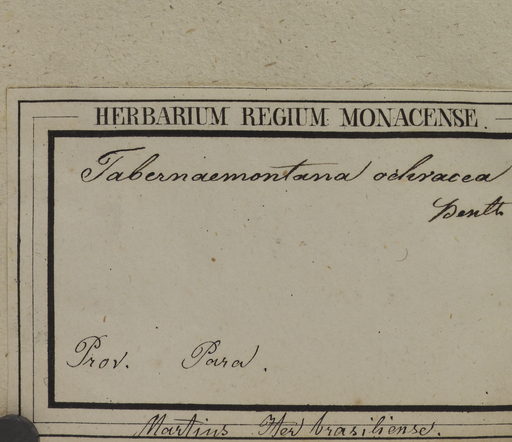 HERBARIUM REGIUM MONACENSE.
Tabernaemontana ochracea
Benth
Prov. Para.
Martius Iter brasiliense.